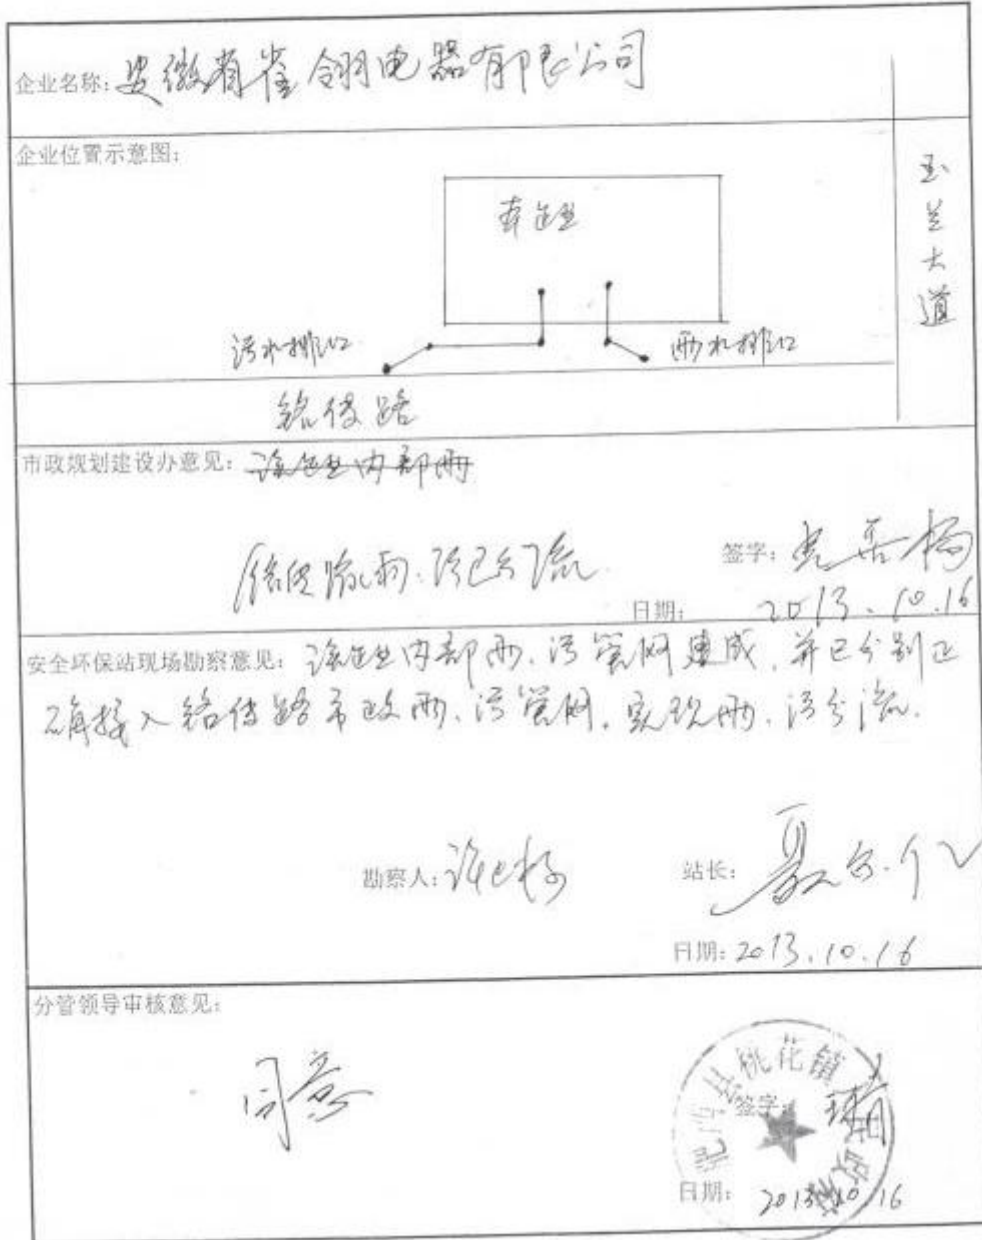 企业名称：安徽省雀翎电器有限公司
企业位置示意图：
本企业
玉兰大道
污水排口
雨水排口
铭传路
市政规划建设办意见：该企业内部雨
铭传路雨、污已分流
签字：
日期：2013.10.16
安全环保站现场勘察意见：该企业内部雨、污管网建成，并已分别正
确接入铭传路市政雨、污管网，实现雨、污分流.
勘察人：
站长：
日期：2013.10.16
分管领导审核意见：
同意
肥西县桃花镇
签字：
日期：2013.10.16